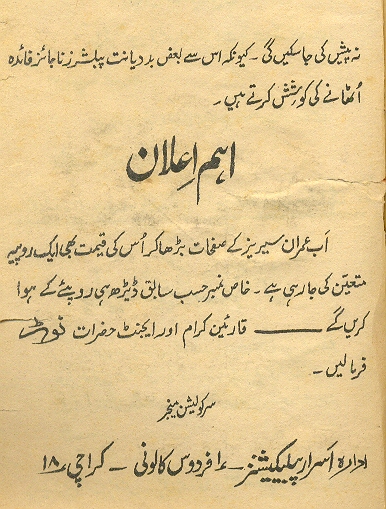 نہ پیش کی جا سکیں گی۔ کیونکہ اس سے بعض بد دیانت پبلشرز ناجائز فائدہ
اُٹھانے کی کوشش کرتے ہیں۔
اہم اِعلان
اَب عمران سیریز کے صفحات بڑھا کر اُس کی قیمت بھی ایک روپیہ
متعیّن کی جا رہی ہے۔ خاص نمبر حسب سابق ڈیڑھ ہی روپیئے کے ہوا
کریں گے ــــــــ قارئین کرام اور ایجنٹ حضرات نوٹ
فرمالیں۔
سرکولیشن منیجر
ادارہ اَسرار پبلیکیشنز ـ ۱/ فردوس کالونی ـ کراچی ۱۸